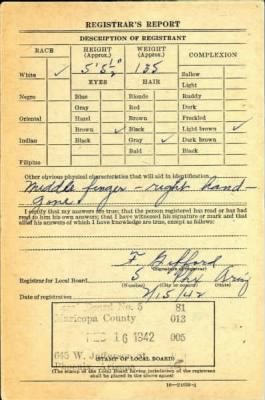 REGISTRAR'S REPORT
DESCRIPTION OF REGISTRANT
RACE HEIGHT (Approx.) WEIGHT (Approx.) COMPLEXION
5' 5½" 135
White ✓ EYES HAIR Sallow
Light
Negro Blue Blonde Ruddy
Gray Red Dark
Oriental Hazel Brown Freckled
Brown ✓ Black Light brown ✓
Indian Black Gray ✓ Dark brown
Bald Black
Filipino
Other obvious physical characteristics that will aid in identification
Middle finger - right hand -
gone
I certify that my answers are true; that the person registered has read or has had
read to him his own answers; that I have witnessed his signature or mark and that
all of his answers of which I have knowledge are true, except as follows:
F
(Signature of registrar)
Registrar for Local Board 5 Phx Ariz
(Number) (City or county) (State)
Date of registration 2/15/42
Board No. 5 81
Maricopa County 013
FEB 16 1942 005
645 W. Jefferson St.
Phoenix, Arizona
(STAMP OF LOCAL BOARD)
(The stamp of the Local Board having jurisdiction of the registrant
shall be placed in the above space)